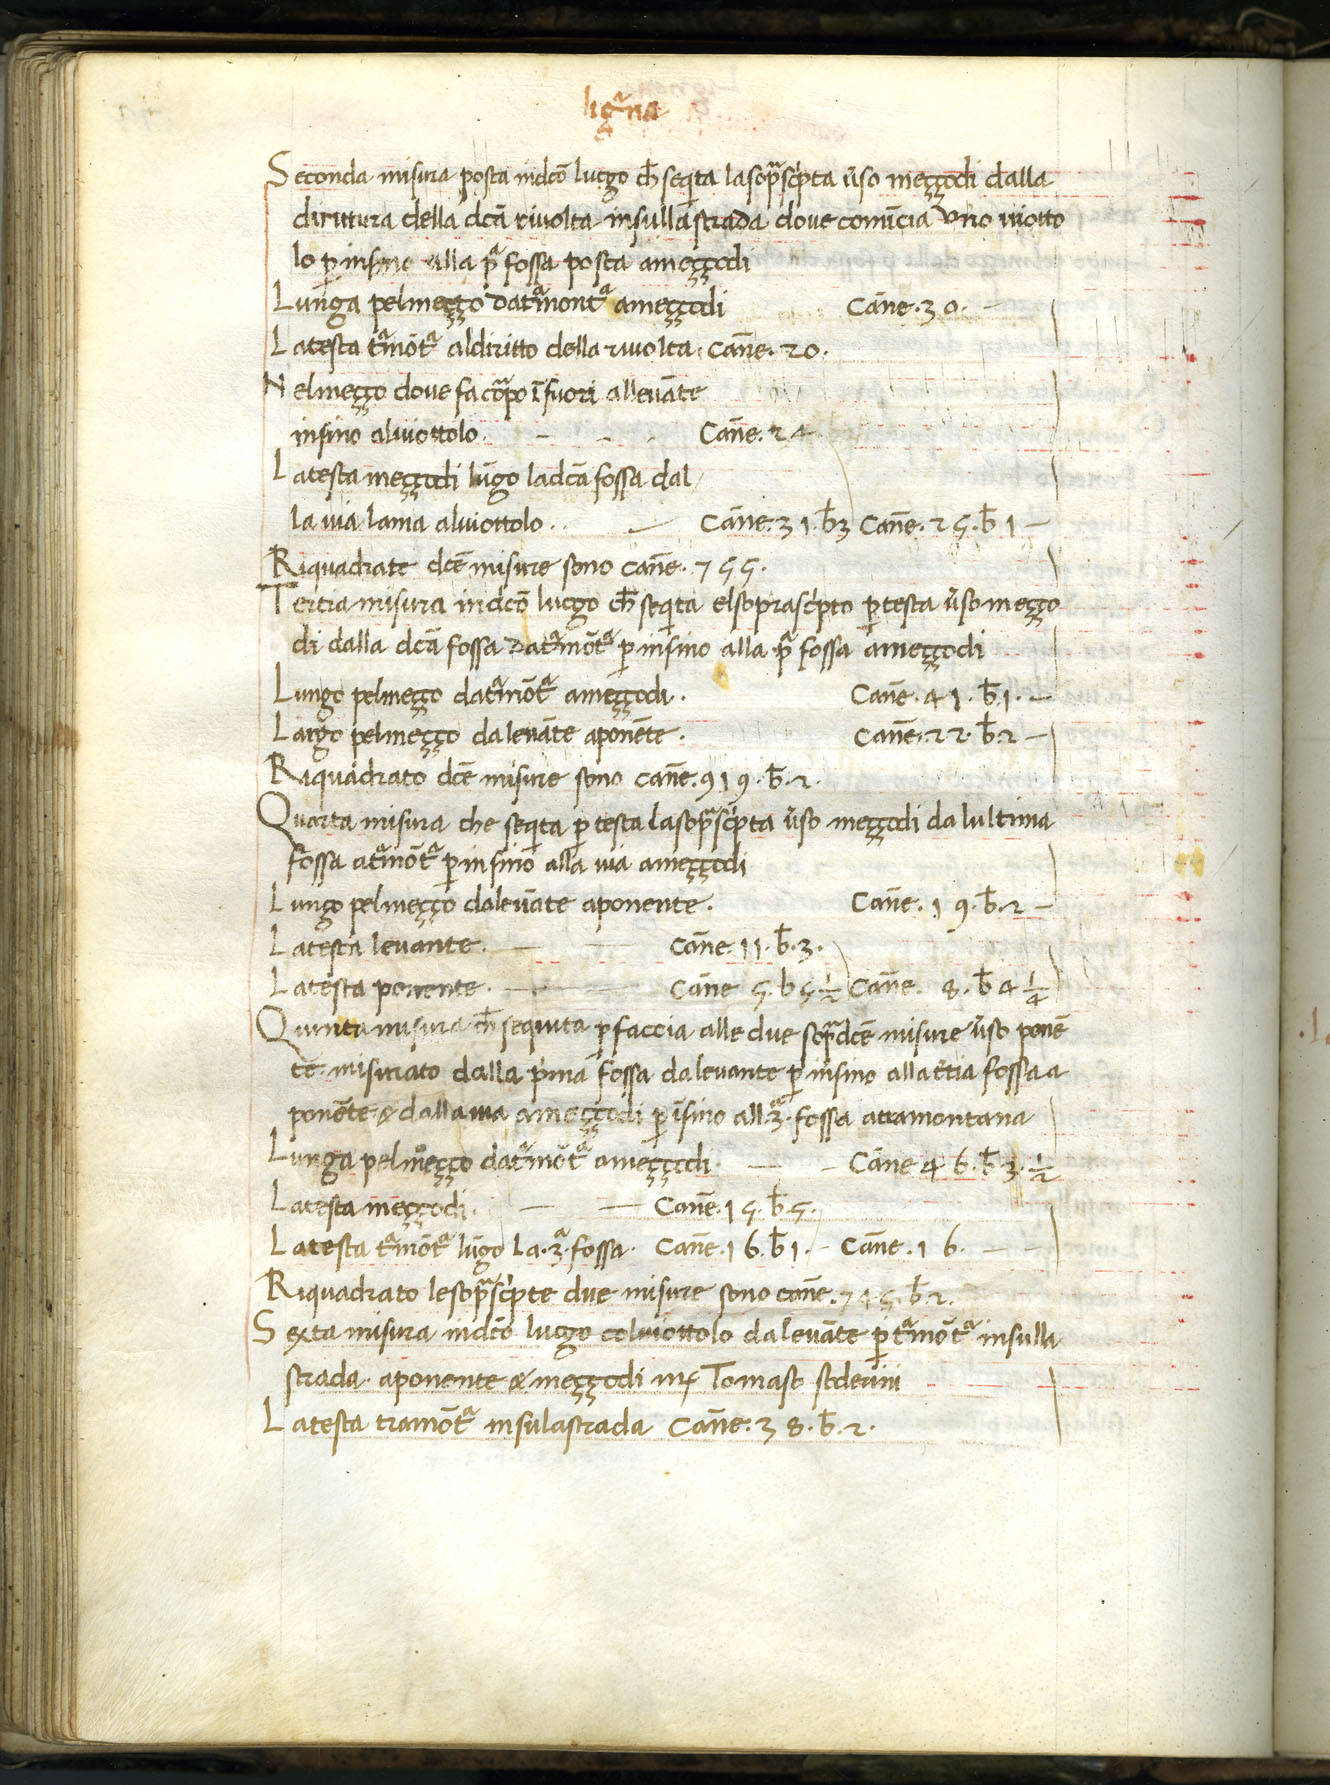 ligͣna
Seconda misura posta indcō luogo ch̄ seqͥta lasopͣscͥpta ūso meggodi dalla
dirittura della dcā rivolta insullā strada dove comīcia uno viotto
lo ꝑ insino alla pͣ fossa posta ameggodi
Lunga pelmeggo datͣmontͣ ameggodi Cāne. 30. —
Latesta tͣmōtͣ aldiritto della rivolta. Canē. 20.
Nelmeggo dove fa cōpo ī fuori allevāte
insino alviottolo. - - - Canē. 24
Latesta meggodi lūgo ladcā fossa dal
la via lama alviottolo. . — Cāne. 31. b̄3 Canē. 25. b̄1 —
Riquadrate dcē misure sono canē. 755.
Tertia misura indcō luogo ch̄ seqͥta elsoprascͥpto ꝑ testa ūso meggo
di dalla dcā fossa datͣmōtͣ ꝑ insino alla pͣ fossa ameggodi
Lungo pelmeggo datͣmōtͣ ameggodi. . Canē. 41. b̄.1. —
Largo pelmeggo dalevāte aponēte. Canē. 22. b̄.2 —
Riquadrato dcē misure sono canē. 919. b̄.2.
Quarta misura che seqͥta ꝑ testa lasopͣscͥpta ūso meggodi da lultima
fossa atͣmōtͣ ꝑ insino alla via ameggodi
Lungo pelmeggo dalevāte aponente. Canē. 19. b̄.2 —
Latesta levante. — — Canē. 11. b̄.3.
Latesta ponente. — — Cāne 5. b 5 ½ Canē. 8. b̄ 4 ¼
Quinta misura ch̄ sequita ꝑ faccia alle due sopͣdcē misure ūso ponē
te misurato dalla pͥma fossa dalevante ꝑ insino alla t̄tia fossa a
ponēte & dalla via ameggodi ꝑ īsino all.3ͣ. fossa atramontana
Lunga pelmeggo datͣmōtͣ ameggodi. — - Cāne 46. b̄ 3. ½
Latesta meggodi. — — Canē. 15. b̄.5.
Latesta tͣmōtͣ lūgo la.3ͣ. fossa. Canē. 16. b̄1. - Cāne. 16. — -
Riquadrato lesopͣscͥpte due misure sono canē. 745. b̄.2.
Sexta misura indcō luogo colviottolo dalevāte ꝑ tͣmōtͣ insulla
strada aponente & meggodi mẜ Tomaso soderini
Latesta tramōtͣ insulastrada Canē. 38. b̄.2.